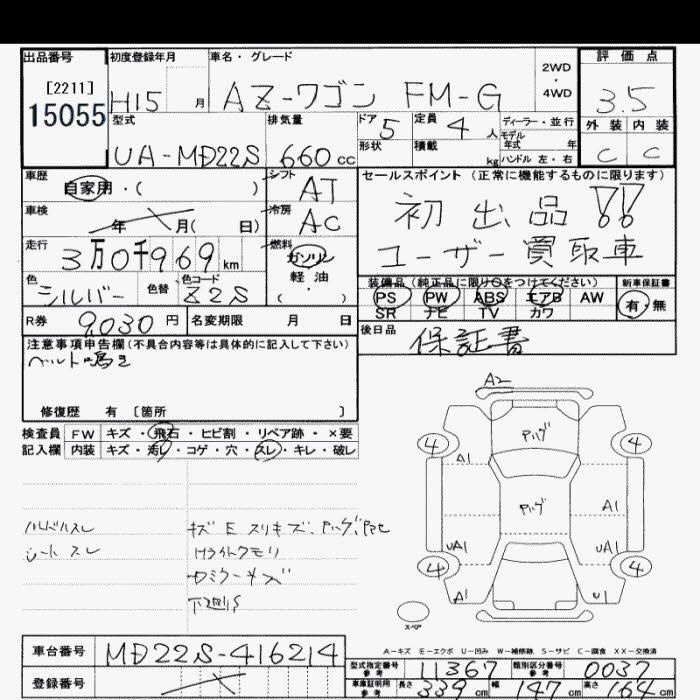 出品番号 初度登録年月 車名・グレード 2WD・4WD 評価点
[2211] 15055 H15 月 AZ-ワゴン FM-G 3.5
型式 排気量 ドア 5 定員 4 人 ディーラー・並行 外装 内装
UA-MD22S 660 cc 形状 積載 kg モデル年式 年式 ハンドル 左・右 C C
車歴 自家用・( ) シフト AT セールスポイント (正常に機能するものに限ります)
車検 年 月( 日) 冷房 AC 初出品!!
走行 3万0千969 km 燃料 ガソリン・軽油・( ) ユーザー買取車
色 シルバー 色替 色コード Z2S 装備品 (純正品に限り○をつけてください) 新車保証書
PS PW ABS エアB AW 有・無
SR ナビ TV カワ
R券 9,030 円 名変期限 月 日 後日品 保証書
注意事項申告欄(不具合内容等は具体的に記入して下さい)
ベルト鳴き
修復歴 有 [箇所 ]
検査員 FW キズ・飛石・ヒビ割・リペア跡・×要
記入欄 内装 キズ・汚し・コゲ・穴・スレ・キレ・破レ
A2
4 4
A1 A1
UA1 UA1
4 4
A1 U1
ハンドルスレ
シートスレ
キズ E スリキズ
スペア
A-キズ E-エクボ U-凹み W-補修跡 S-サビ C-腐食 XX-交換済
車台番号 MD22S-416214
登録番号
型式指定番号 参考 11367 類別区分番号 参考 0037
車車証明用 参考 長さ 339 cm 幅 147 cm 高さ 164 cm